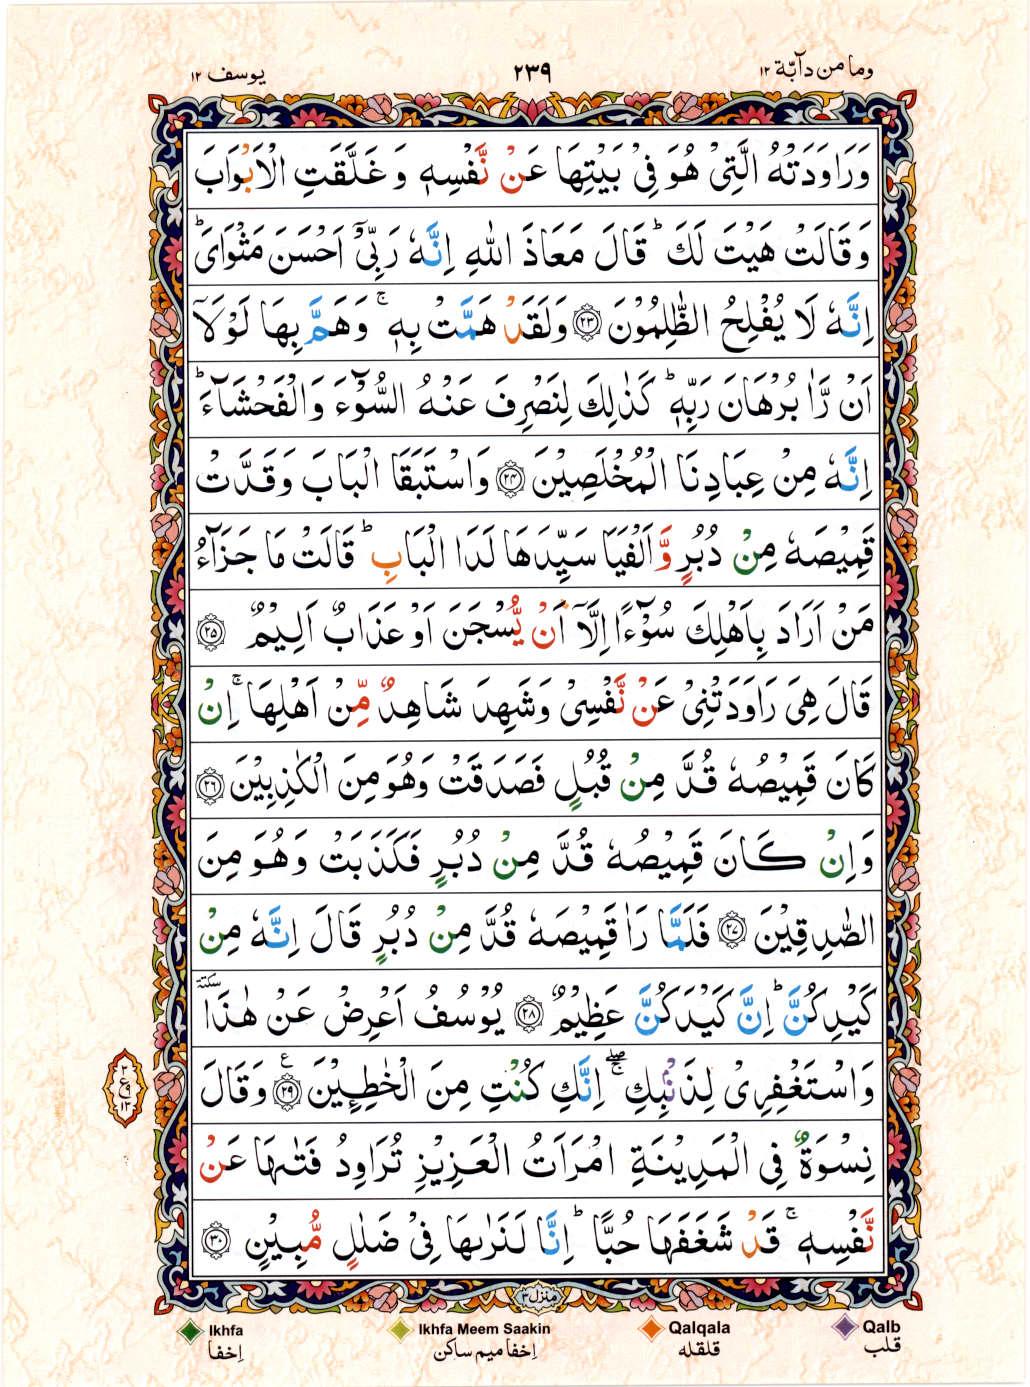 وما من دآبّة ١٢
٢٣٩
يوسف ١٢
وَرَاوَدَتْهُ الَّتِيْ هُوَ فِيْ بَيْتِهَا عَنْ نَّفْسِهٖ وَ غَلَّقَتِ الْاَبْوَابَ
وَقَالَتْ هَيْتَ لَكَ ؕ قَالَ مَعَاذَ اللّٰهِ اِنَّهٗ رَبِّيْۤ اَحْسَنَ مَثْوَايَ ؕ
اِنَّهٗ لَا يُفْلِحُ الظّٰلِمُوْنَ ﴿۲۳﴾ وَلَقَدْ هَمَّتْ بِهٖ ۚ وَهَمَّ بِهَا لَوْلَاۤ
اَنْ رَّاٰ بُرْهَانَ رَبِّهٖ ؕ كَذٰلِكَ لِنَصْرِفَ عَنْهُ السُّوْٓءَ وَالْفَحْشَآءَ ؕ
اِنَّهٗ مِنْ عِبَادِنَا الْمُخْلَصِيْنَ ﴿۲۴﴾ وَاسْتَبَقَا الْبَابَ وَقَدَّتْ
قَمِيْصَهٗ مِنْ دُبُرٍ وَّاَلْفَيَا سَيِّدَهَا لَدَا الْبَابِ ؕ قَالَتْ مَا جَزَآءُ
مَنْ اَرَادَ بِاَهْلِكَ سُوْٓءًا اِلَّاۤ اَنْ يُّسْجَنَ اَوْ عَذَابٌ اَلِيْمٌ ﴿۲۵﴾
قَالَ هِيَ رَاوَدَتْنِيْ عَنْ نَّفْسِيْ وَشَهِدَ شَاهِدٌ مِّنْ اَهْلِهَا ۚ اِنْ
كَانَ قَمِيْصُهٗ قُدَّ مِنْ قُبُلٍ فَصَدَقَتْ وَهُوَ مِنَ الْكٰذِبِيْنَ ﴿۲۶﴾
وَاِنْ كَانَ قَمِيْصُهٗ قُدَّ مِنْ دُبُرٍ فَكَذَبَتْ وَهُوَ مِنَ
الصّٰدِقِيْنَ ﴿۲۷﴾ فَلَمَّا رَاٰ قَمِيْصَهٗ قُدَّ مِنْ دُبُرٍ قَالَ اِنَّهٗ مِنْ
كَيْدِكُنَّ ؕ اِنَّ كَيْدَكُنَّ عَظِيْمٌ ﴿۲۸﴾ يُوْسُفُ اَعْرِضْ عَنْ هٰذَا سكتة
وَاسْتَغْفِرِيْ لِذَنْۢبِكِ ۖۚ اِنَّكِ كُنْتِ مِنَ الْخٰطِـِٕيْنَ ﴿۲۹﴾ ع وَقَالَ
نِسْوَةٌ فِي الْمَدِيْنَةِ امْرَاَتُ الْعَزِيْزِ تُرَاوِدُ فَتٰىهَا عَنْ
نَّفْسِهٖ ۚ قَدْ شَغَفَهَا حُبًّا ؕ اِنَّا لَنَرٰىهَا فِيْ ضَلٰلٍ مُّبِيْنٍ ﴿۳۰﴾
منزل ٣
Ikhfa Ikhfa Meem Saakin Qalqala Qalb
اِخفا اِخفا ميم ساكن قلقله قلب